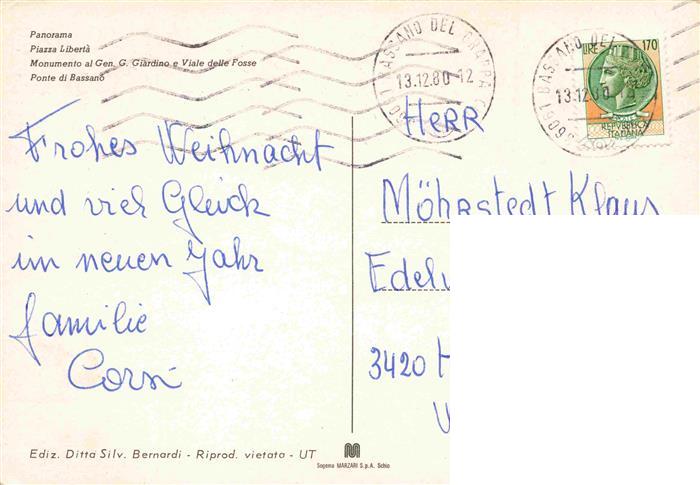 Panorama
Piazza Libertà
Monumento al Gen. G. Giardino e Viale delle Fosse
Ponte di Bassano
BASSANO DEL GRAPPA
13.12.80 - 12
36061 BASSANO DEL
13.12.80
LIRE 170
REPVBBLICA
ITALIANA
Frohes Weihnacht
und viel Glück
im neuen Jahr
familie
Corsi
HERR
Möhrstedt Klaus
3420
Ediz. Ditta Silv. Bernardi - Riprod. vietata - UT
Sogema MARZARI S.p.A. Schio